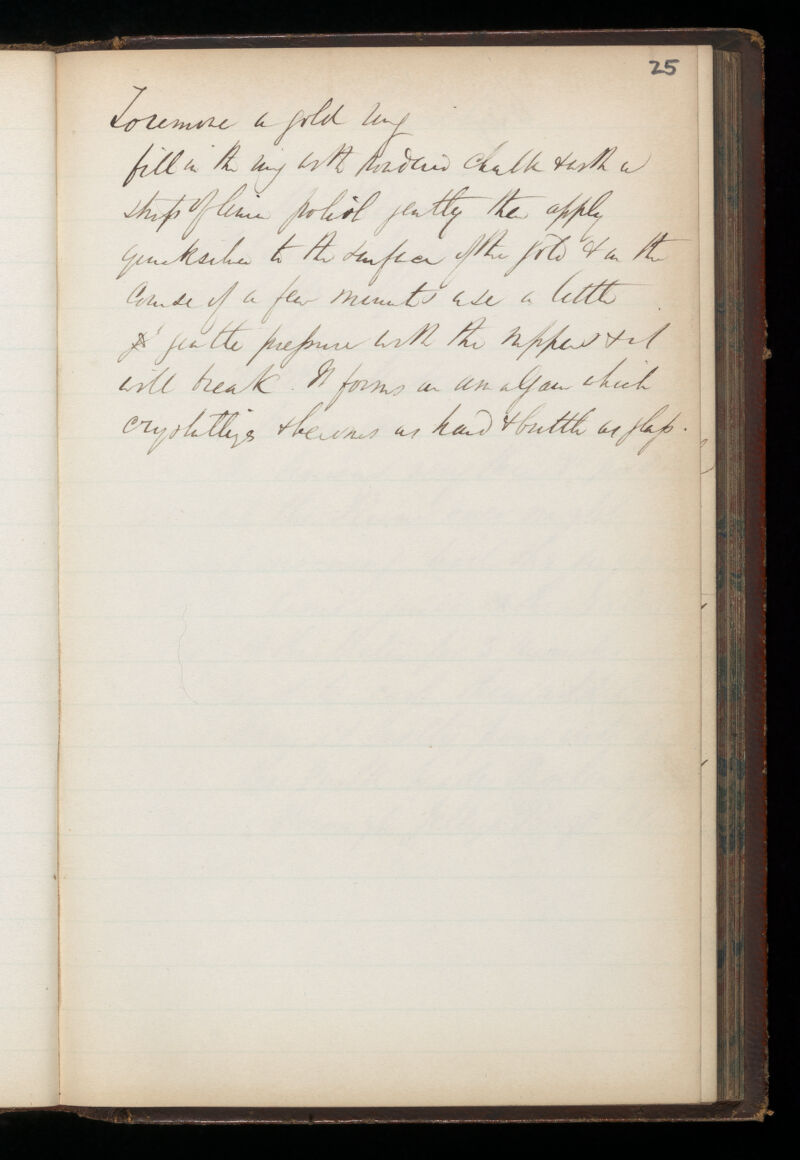 25
To remove a gold ring
fill in the ring with powdered chalk & with a
strip of linen polish gently then apply
quicksilver to the surface of the gold & in the
course of a few minutes use a little
gentle pressure with the nippers & it
will break. It forms an amalgam which
crystallizes & becomes as hard & brittle as glass.